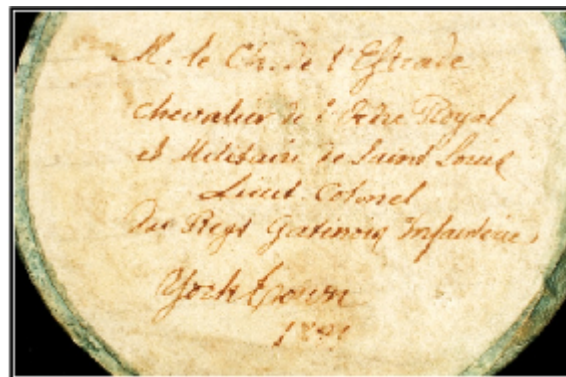 M. le Ch. de l'Estrade
chevalier de l'Ordre Royal
et Militaire de Saint Louis
Lieut. Colonel
du Regt Gatinois Infanterie
York town